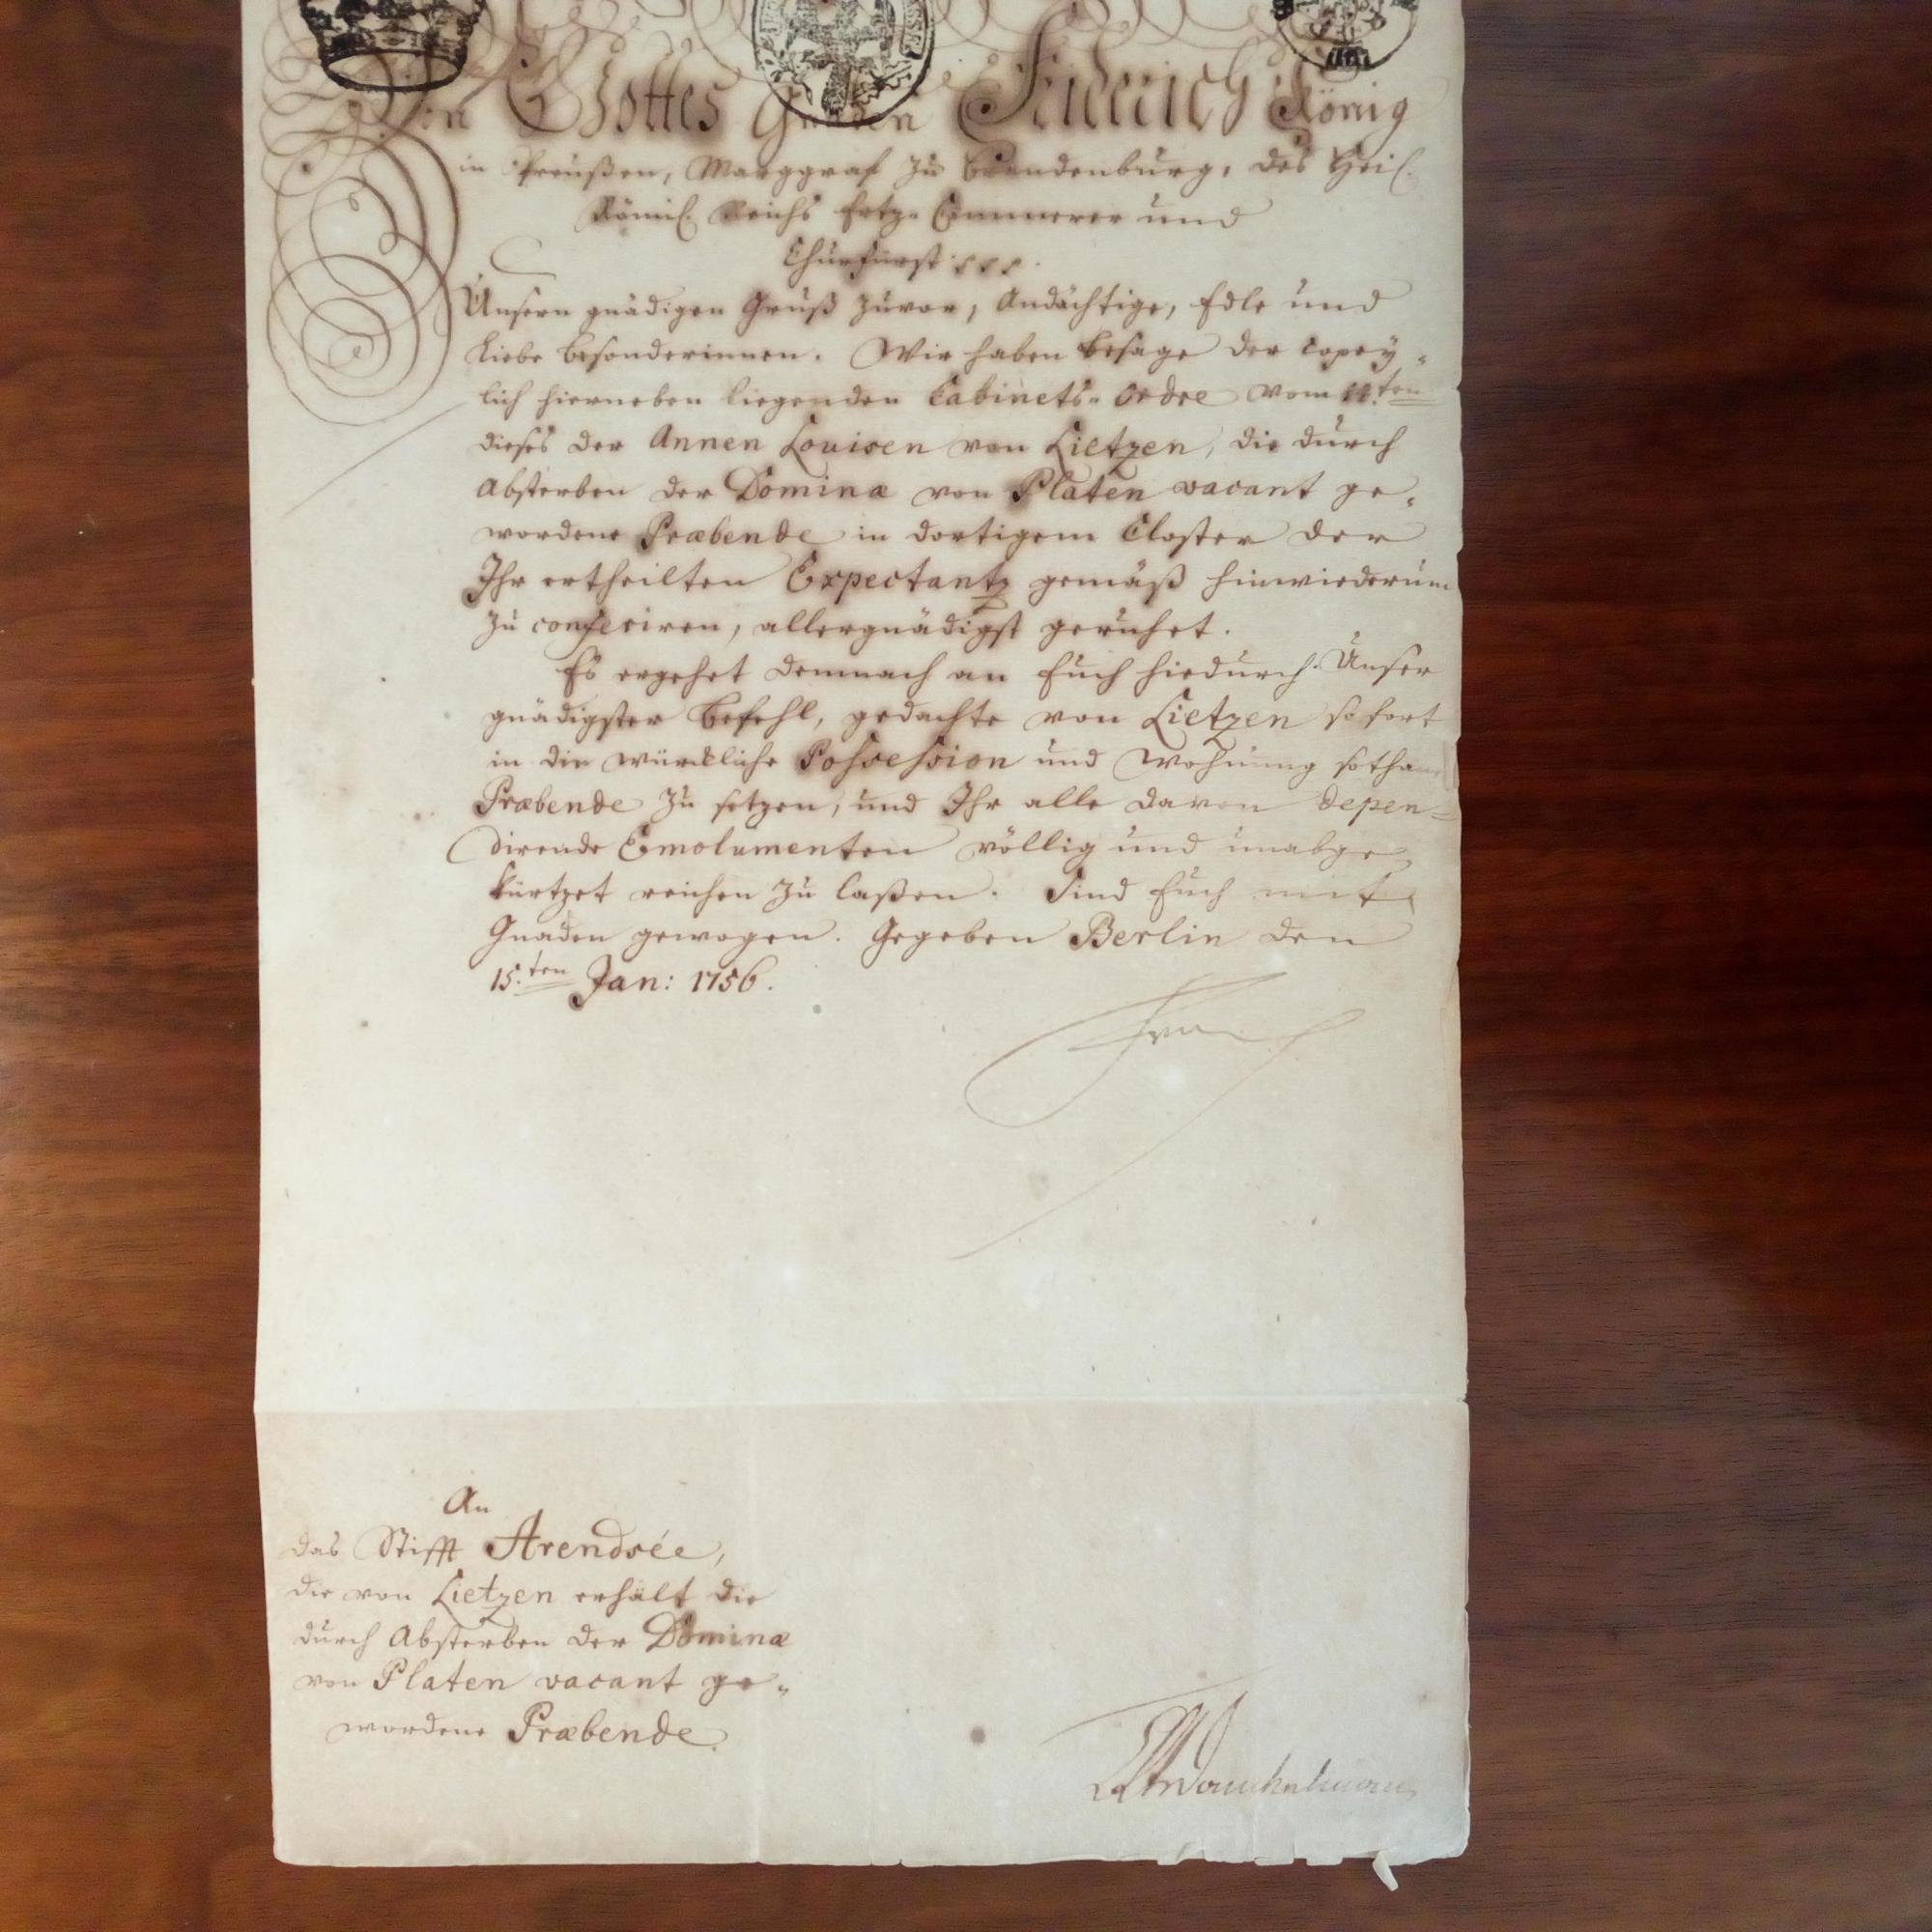 Von Gottes Gnaden Friderich König
in Preußen, Marggraf zu Brandenburg, des Heil.
Römis. Reichs Ertz- Cammerer und
Churfürst &&&.
Unsern gnädigen Gruß zuvor, Andächtige, Edle und
Liebe besonderinnen. Wir haben besage der copey-
lich hierneben liegenden Cabinets-Ordre vom ten
dieses der Annen Louisen von Lietzen, die durch
Absterben der Dominæ von Platen vacant ge-
wordene Præbende in dortigem Closter der
Ihr ertheilten Expectantz gemäß hinwiederum
zu conferiren, allergnädigst geruhet.
Es ergehet demnach an Euch hiedurch Unser
gnädigster Befehl, gedachte von Lietzen so fort
in die würckliche Possession und Wohnung sothan
Præbende zu setzen, und Ihr alle davon depen-
dirende Emolumenten völlig und unabge-
kürtzet reichen zu laßen. Sind Euch mit
Gnaden gewogen. Gegeben Berlin den
15.ten Jan: 1756.
An
das Stifft Arendsée,
die von Lietzen erhält die
durch Absterben der Dominæ
von Platen vacant ge-
wordene Præbende.